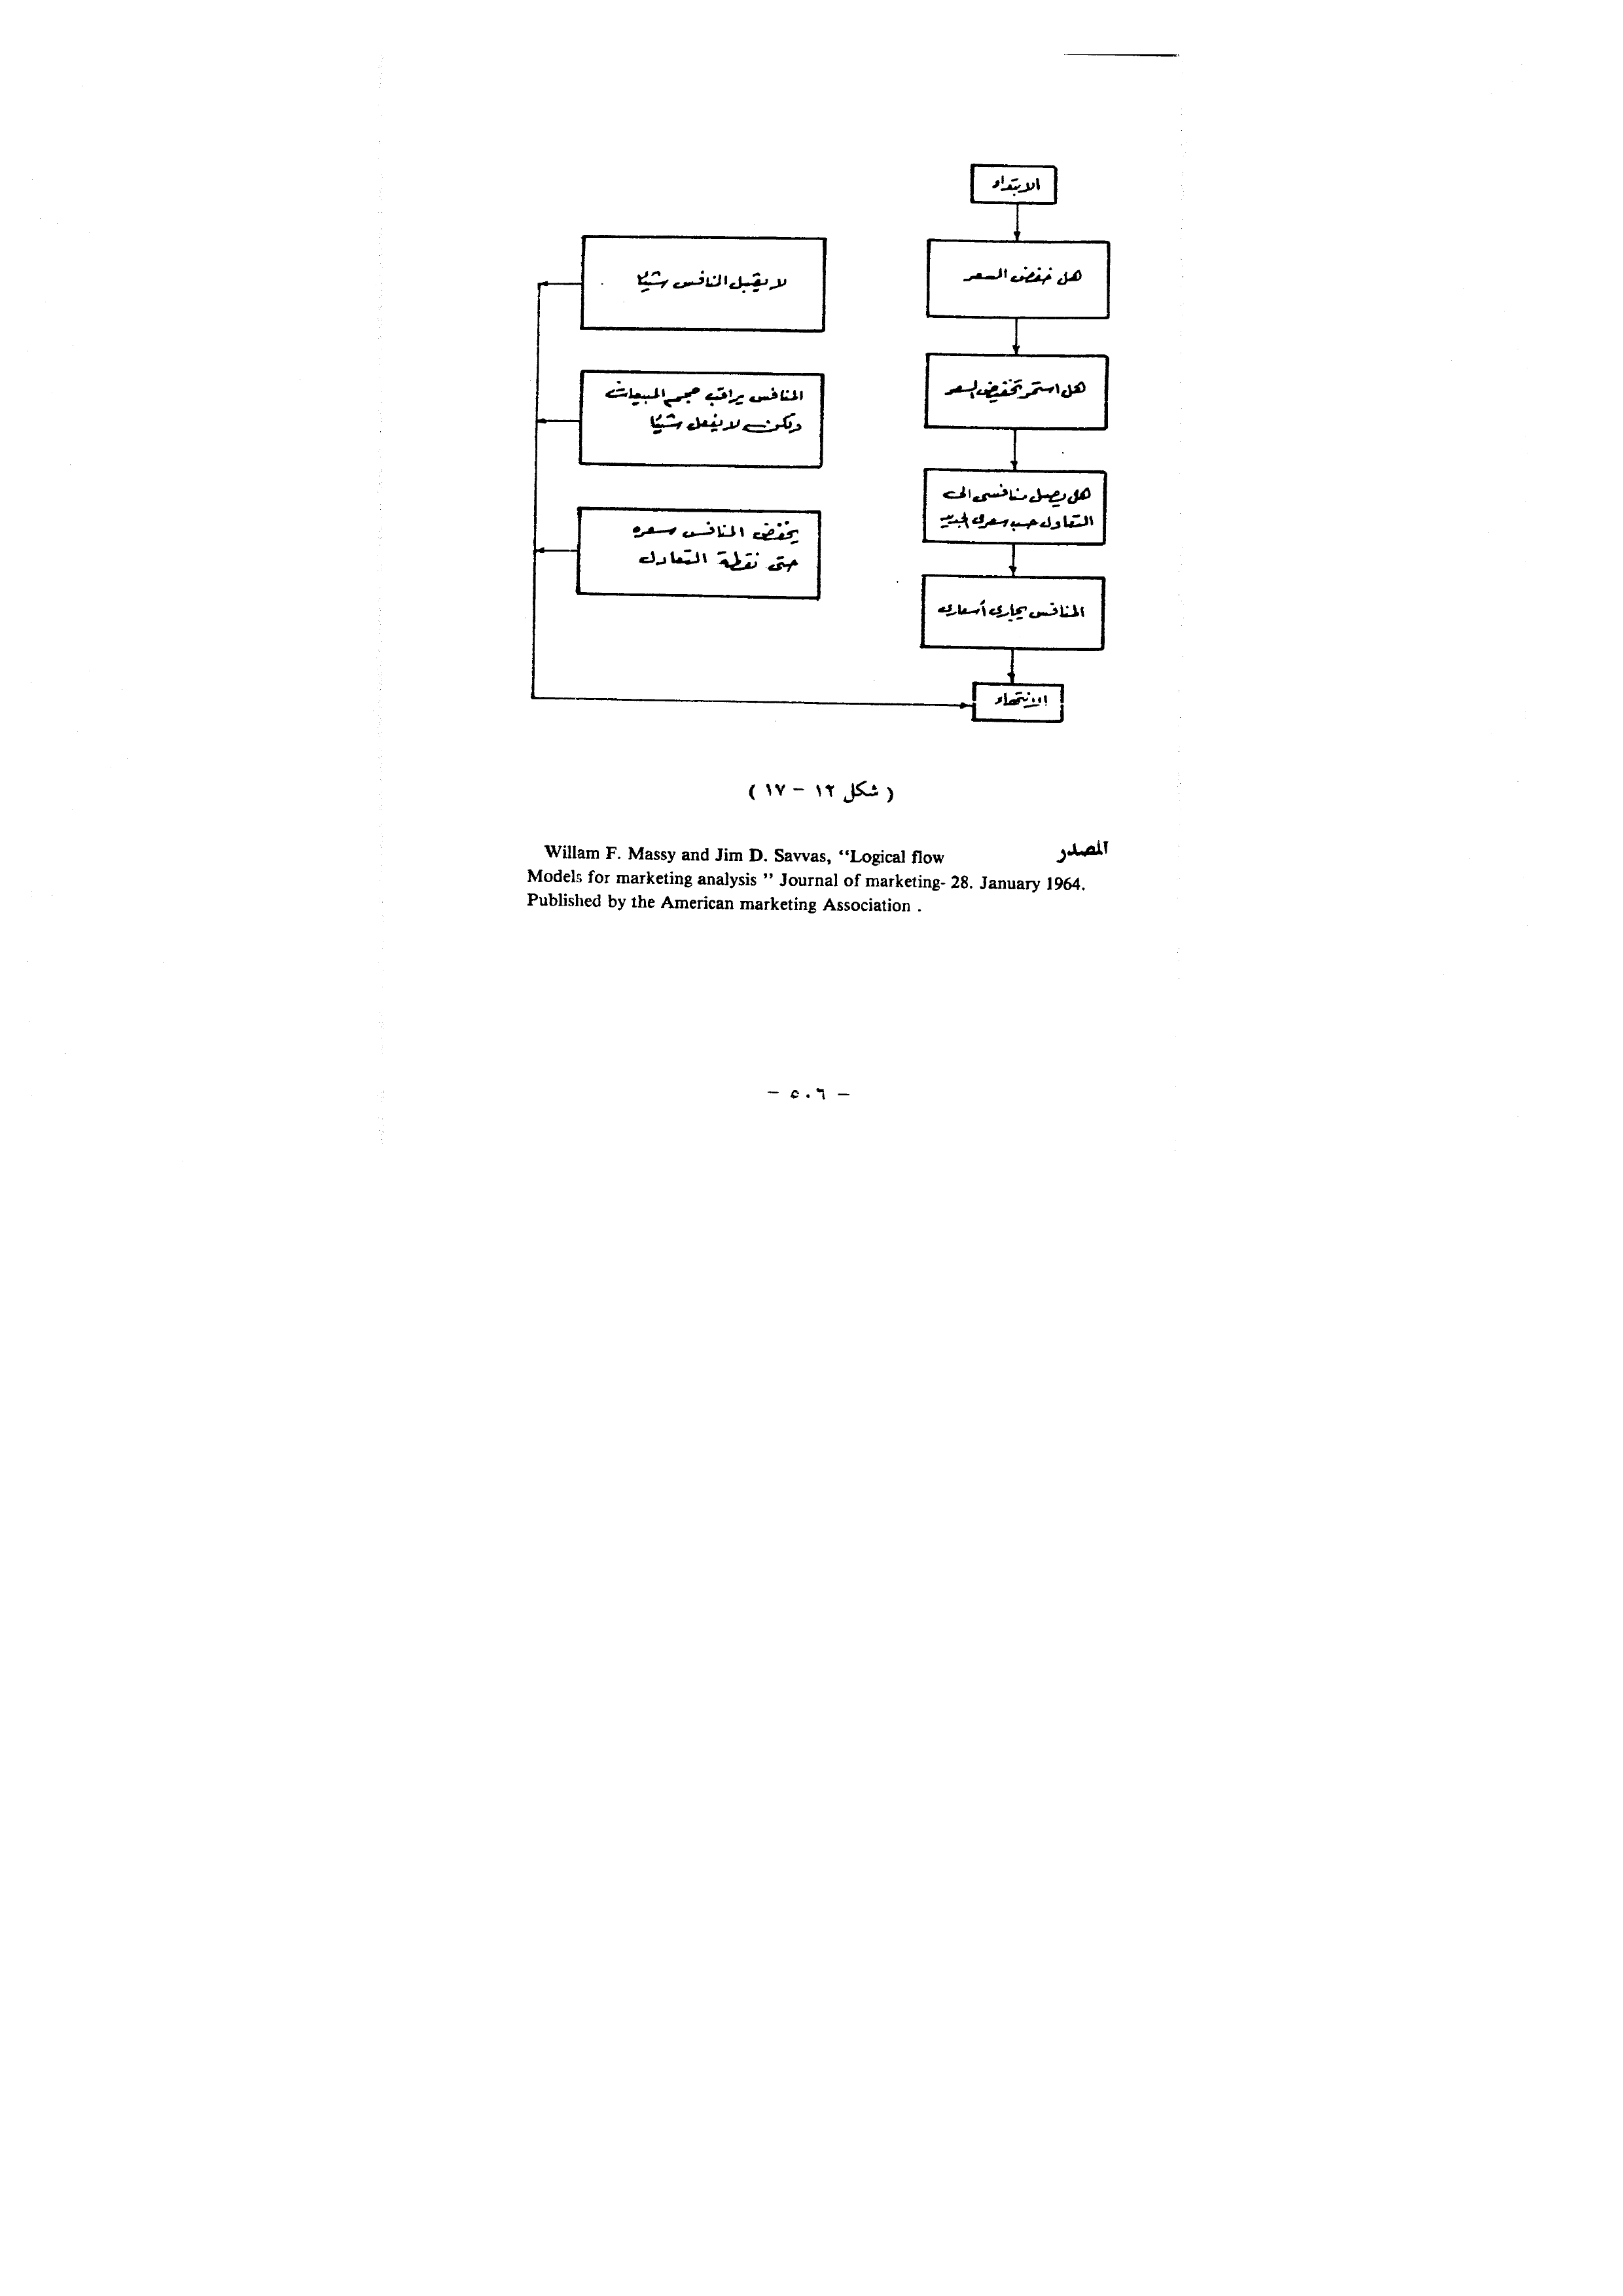 الابتداء
هل خفض السعر
هل استمر تخفيض السعر
هل يصل منافسى الى
التعادل حسب سعرى الجديد
المنافس يجارى أسعارى
الانتهاء
لا يقبل المنافس شيئا
المنافس يراقب حجم المبيعات
ولكن لا يفعل شيئا
يخفض المنافس سعره
حتى نقطة التعادل
( شكل ١٢ – ١٧ )
المصدر
Willam F. Massy and Jim D. Savvas, “Logical flow
Models for marketing analysis ” Journal of marketing- 28. January 1964.
Published by the American marketing Association .
– ٥٠٦ –